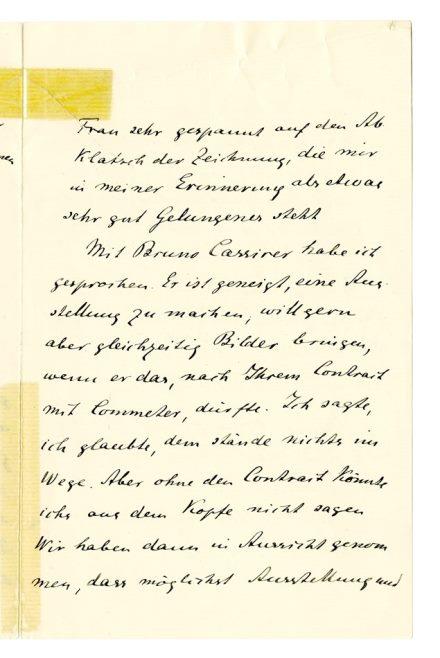 Frau sehr gespannt auf den Ab
klatsch der Zeichnung, die mir
in meiner Erinnerung als etwas
sehr gut Gelungenes steht
Mit Bruno Cassirer habe ich
gesprochen. Er ist geneigt, eine Aus-
stellung zu machen, will gern
aber gleichzeitig Bilder bringen,
wenn er das, nach Ihrem Contract
mit Commeter, dürfte. Ich sagte,
ich glaubte, dem stände nichts im
Wege. Aber ohne den Contract könnte
ichs aus dem Kopfe nicht sagen
Wir haben dann in Aussicht genom
men, dass möglichst Ausstellung und